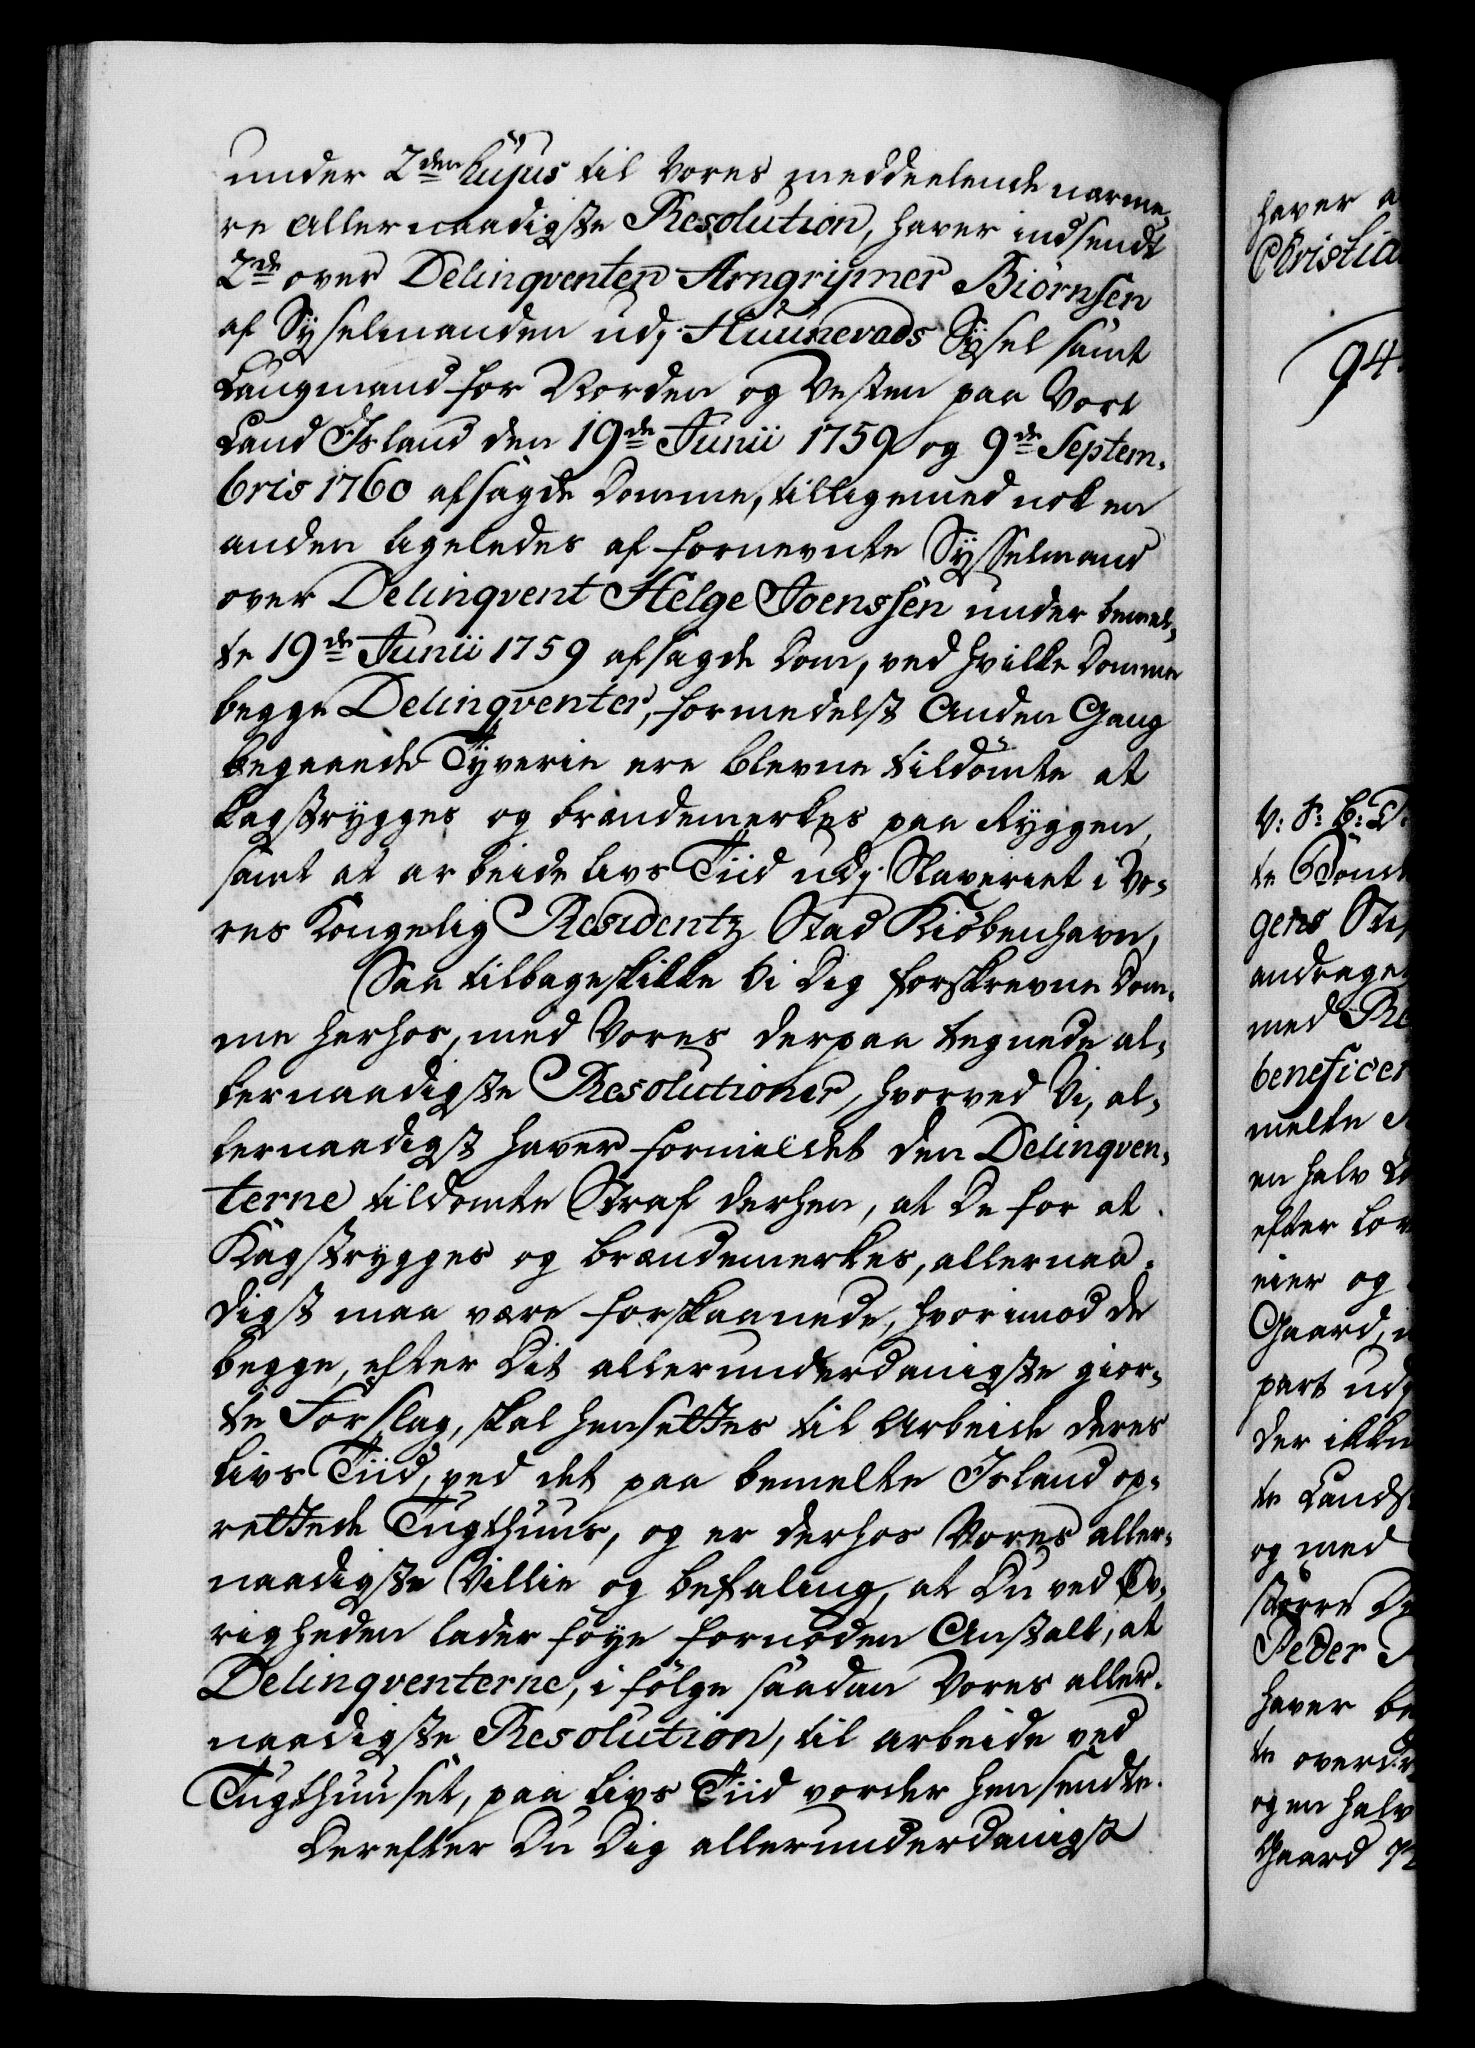 under 2den hujus til Vores meddeelende nærme-
re allernaadigste Resolution, haver indsendt
2de over Delinqventen Arngrijmer Biörnsen
af Sysselmanden udj Huunevads Sysel samt
Laugmand for Norden og Vesten paa Vort
Land Island den 19de Junii 1759 og 9de Septem-
bris 1760 afsagde Domme, tilligemed nok en
anden ligeledes af fornevnte Sysselmand
over Delinqvent Helge Joenssen under bemel-
te 19de Junii 1759 afsagde Dom, ved hvilke Domme
begge Delinqventer, formedelst Anden Gang
begaaede Tyverie ere blevne tildömte at
kagstryges og brændemerkes paa Ryggen,
samt at arbeide livs Tiid udj Slaveriet i Vo-
res Kongelig Residentz Stad Kiöbenhavn,
Saa tilbageskikke Vi Dig forskrevne Dom-
me herhos, med Vores derpaa tegnede al-
lernaadigste Resolutioner, hvorved Vi, al-
lernaadigst haver formildet den Delinqven-
terne tildömte Straf derhen, at De for at
Kagstrygges og brændemerkes, allernaa-
digst maa være forskaanede, hvorimod de
begge, efter Dit allerunderdanigste gior-
te Forslag, skal hensettes til Arbeide deres
livs Tiid, ved det paa bemelte Island op-
rettede Tugthuus, og er derhos Vores aller-
naadigste Villie og befaling, at Du ved Öv-
righeden lader föye fornöden Anstalt, at
Delinqventerne, i fölge saadan Vores aller-
naadigste Resolution, til arbeide ved
Tugthuuset, paa livs Tiid vorder hensendte.
Derefter Du Dig allerunderdanigst
haver
Christia
94
V: F: C: D.
te
gens Sti
andrage
med Re
beneficer
melte
en halv
efter lov
eier og
Gaard, i
part udj
der ikke
te Lands
og med
större
Peder
haver be
te
og en halv
Gaard